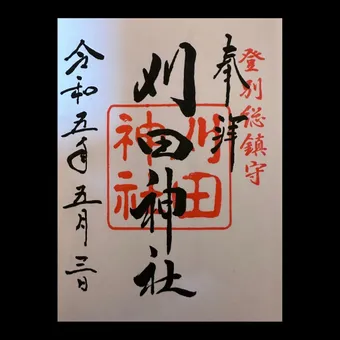 登別総鎮守
奉拝
刈田神社
刈田
神社
令和五年五月三日